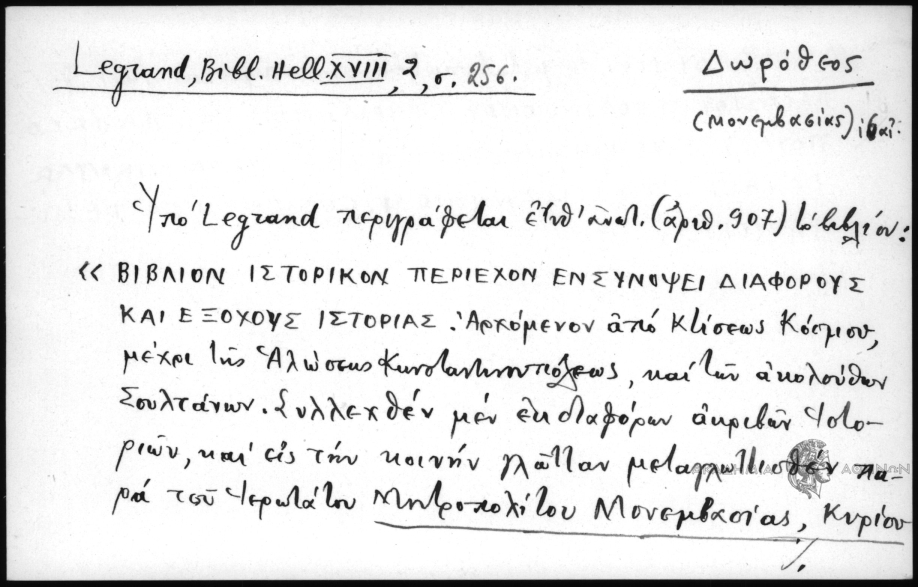 Legrand, Bibl. Hell. XVIII, 2, σ. 256.
Δωρόθεος
(Μονεμβασίας)
Ὑπό Legrand περιγράφεται (ἀριθ. 907) τό βιβλίον:
« ΒΙΒΛΙΟΝ ΙΣΤΟΡΙΚΟΝ ΠΕΡΙΕΧΟΝ ΕΝ ΣΥΝΟΨΕΙ ΔΙΑΦΟΡΟΥΣ
ΚΑΙ ΕΞΟΧΟΥΣ ΙΣΤΟΡΙΑΣ. Ἀρχόμενον ἀπό Κτίσεως Κόσμου,
μέχρι τῆς Ἁλώσεως Κωνσταντινουπόλεως, καί τῶν ἀκολούθων
Σουλτάνων. Συλλεχθέν μέν ἐκ διαφόρων ἀκριβῶν Ἱστο-
ριῶν, καί εἰς τήν κοινήν γλῶτταν μεταγλωττισθέν πα-
ρά τοῦ Ἱερωτάτου Μητροπολίτου Μονεμβασίας, Κυρίου
./.